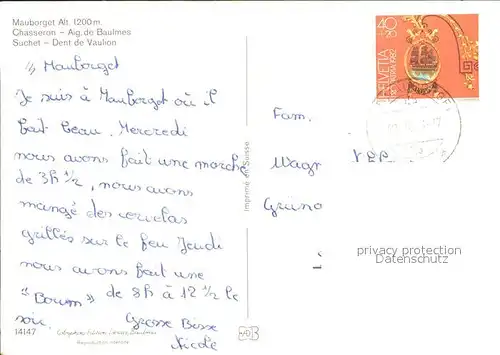 Mauborget Alt. 1200 m.
Chasseron – Aig. de Baulmes
Suchet – Dent de Vaulion
Mauborget
Je suis à Mauborget où il
fait beau. Mercredi
nous avons fait une marche
de 3h 1/2, nous avons
mangé des cervelas
grillés sur le feu Jeudi
nous avons fait une
"Boum" de 8h à 12 1/2 le
soir. Grosse Bisse
Nicole
14147
Imprimé en Suisse
40
+20
HELVETIA
Fam.
Wagn
Grüno
privacy protection
Datenschutz